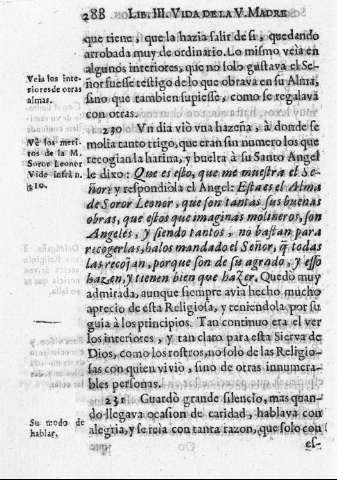 288 LIB. III. VIDA DE LA V. MADRE
que tiene, que la hazia salir de si, quedando
arrobada muy de ordinario. Lo mismo veia en
algunos interiores, que no solo gustava el Se-
ñor fuesse testigo de lo que obrava en su Alma,
sino que tambien supiesse, como se regalava
con otras.
Veia los inte-
riores de otras
almas.
230 Vn dia viò vna hazeña, à donde se
molia tanto trigo, que eran sin numero los que
recogian la harina, y buelta à su Santo Angel
le dixo: Que es esto, que me muestra el Se-
ñor? y respondiòla el Angel: Esta es el Alma
de Soror Leonor, que son tantas sus buenas
obras, que estos que imaginas molineros, son
Angeles, y siendo tantos, no bastan para
recogerlas, halos mandado el Señor, q̃ todas
las recojan, porque son de su agrado, y esso
hazan, y tienen bien que hazer. Quedò muy
admirada, aunque siempre avia hecho mucho
aprecio de esta Religiosa, y teniendola por su
guia à los principios. Tan continuo era el ver
los interiores, y tan claro para esta Sierva de
Dios, como los rostros, no solo de las Religio-
sas con quien vivio, sino de otras innumera-
bles personas.
Vè los meri-
tos de la M.
Soror Leonor
Vide infra n.
310.
231 Guardò grande silencio, mas quan-
do llegava ocasion de caridad, hablava con
alegria, y se reia con tanta razon, que solo con
es-
Su modo de
hablar.